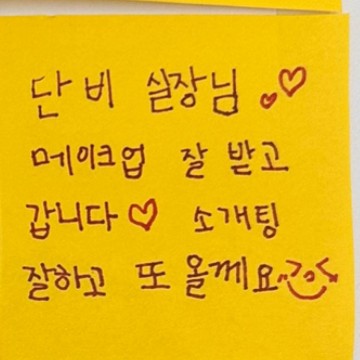 단비 실장님
메이크업 잘 받고
갑니다♡ 소개팅
잘하고 또 올께요~